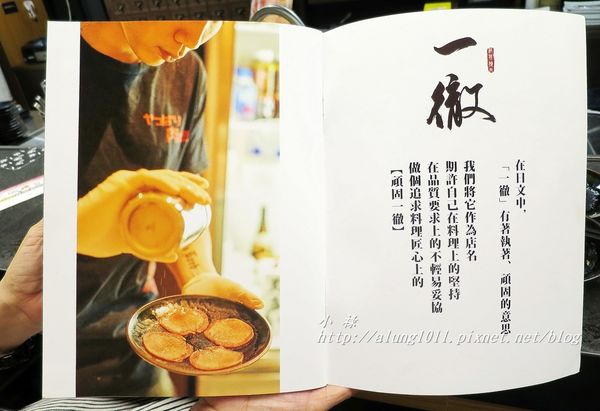 一徹
在日文中，
「一徹」有著執著、頑固的意思
我們將它作為店名
期許自己在料理上的堅持
在品質要求上的不輕易妥協
做個追求料理匠心上的
【頑固一徹】
小祿
http://alung1011.pixnet.net/blog